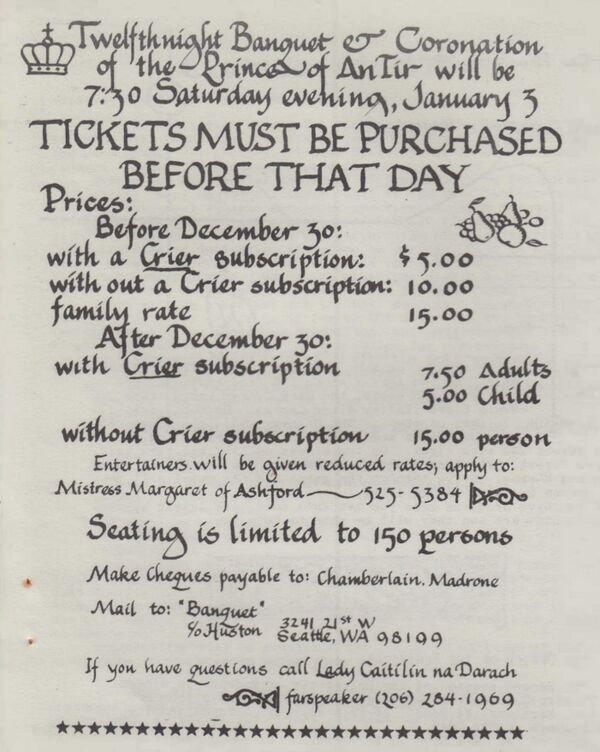 Twelfthnight Banquet & Coronation
of the Prince of AnTir will be
7:30 Saturday evening, January 3
TICKETS MUST BE PURCHASED
BEFORE THAT DAY
Prices:
Before December 30:
with a Crier subscription: $5.00
with out a Crier subscription: 10.00
family rate 15.00
After December 30:
with Crier subscription 7.50 Adults
5.00 Child
without Crier subscription 15.00 person
Entertainers will be given reduced rates; apply to:
Mistress Margaret of Ashford 525-5384
Seating is limited to 150 persons
Make Cheques payable to: Chamberlain. Madrone
Mail to: "Banquet"
c/o Huston 3241 21st W
Seattle, WA 98199
If you have questions call Lady Caitilin na Darach
farspeaker (206) 284-1969